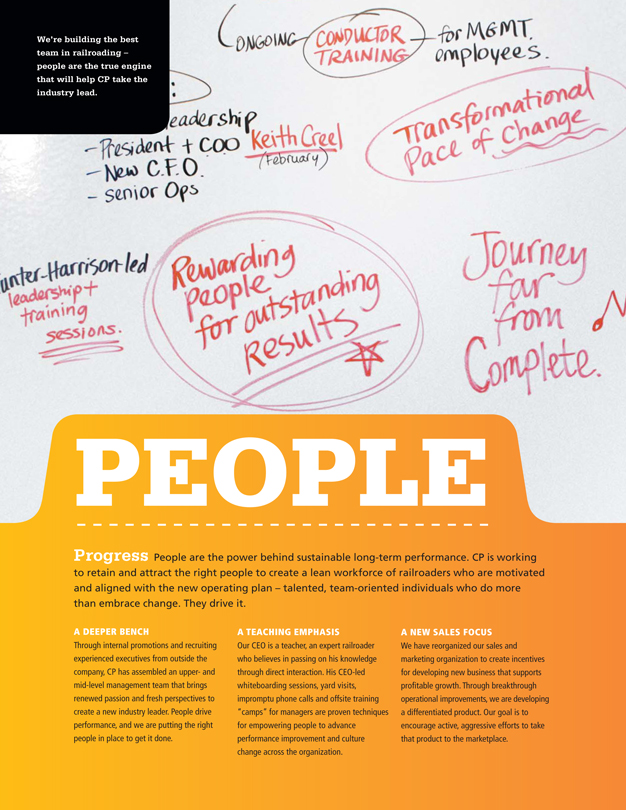 We're building the best
team in railroading –
people are the true engine
that will help CP take the
industry lead.
ONGOING CONDUCTOR TRAINING for MGMT. employees.
:
leadership
- President + COO Keith Creel
(February)
- New C.F.O.
- senior Ops
Transformational
Pace of change
unter-Harrison-led
leadership +
training
sessions.
Rewarding
people
for outstanding
Results
Journey
far
from
Complete.
PEOPLE
Progress People are the power behind sustainable long-term performance. CP is working
to retain and attract the right people to create a lean workforce of railroaders who are motivated
and aligned with the new operating plan – talented, team-oriented individuals who do more
than embrace change. They drive it.
A DEEPER BENCH
Through internal promotions and recruiting
experienced executives from outside the
company, CP has assembled an upper- and
mid-level management team that brings
renewed passion and fresh perspectives to
create a new industry leader. People drive
performance, and we are putting the right
people in place to get it done.
A TEACHING EMPHASIS
Our CEO is a teacher, an expert railroader
who believes in passing on his knowledge
through direct interaction. His CEO-led
whiteboarding sessions, yard visits,
impromptu phone calls and offsite training
"camps" for managers are proven techniques
for empowering people to advance
performance improvement and culture
change across the organization.
A NEW SALES FOCUS
We have reorganized our sales and
marketing organization to create incentives
for developing new business that supports
profitable growth. Through breakthrough
operational improvements, we are developing
a differentiated product. Our goal is to
encourage active, aggressive efforts to take
that product to the marketplace.